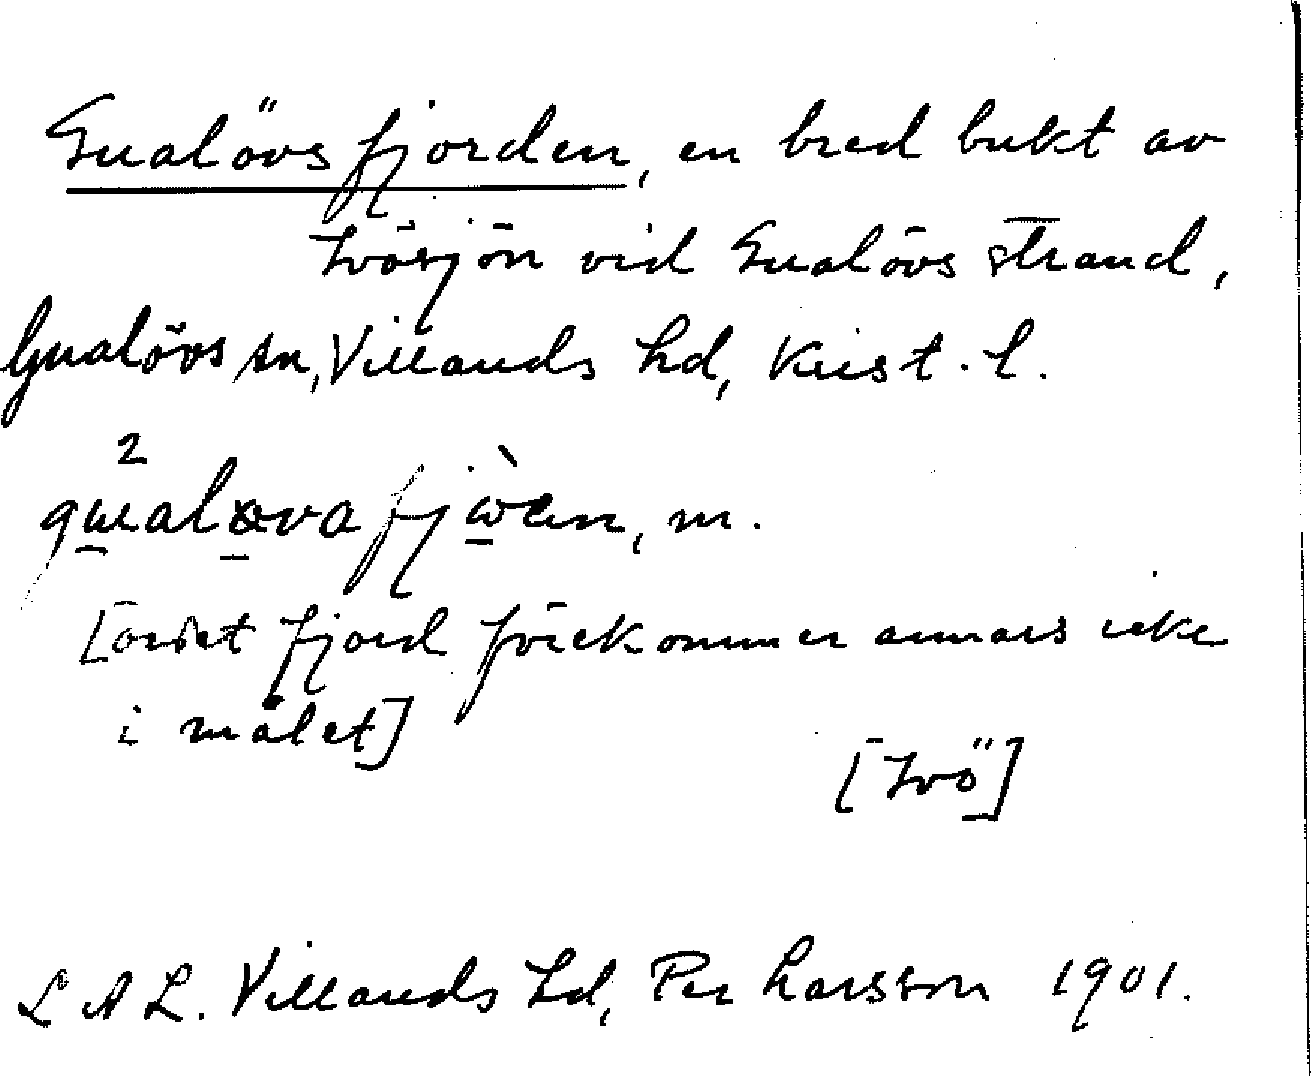 Gualövsfjorden, en bred bukt av
Ivösjön vid Gualövs strand,
Gualövs sn, Villands hd, Krist. l.
fjord förekommer annars icke
[ordet
i målet]
[Ivö]
L A L. Villands hd, Per Larsson 1901.